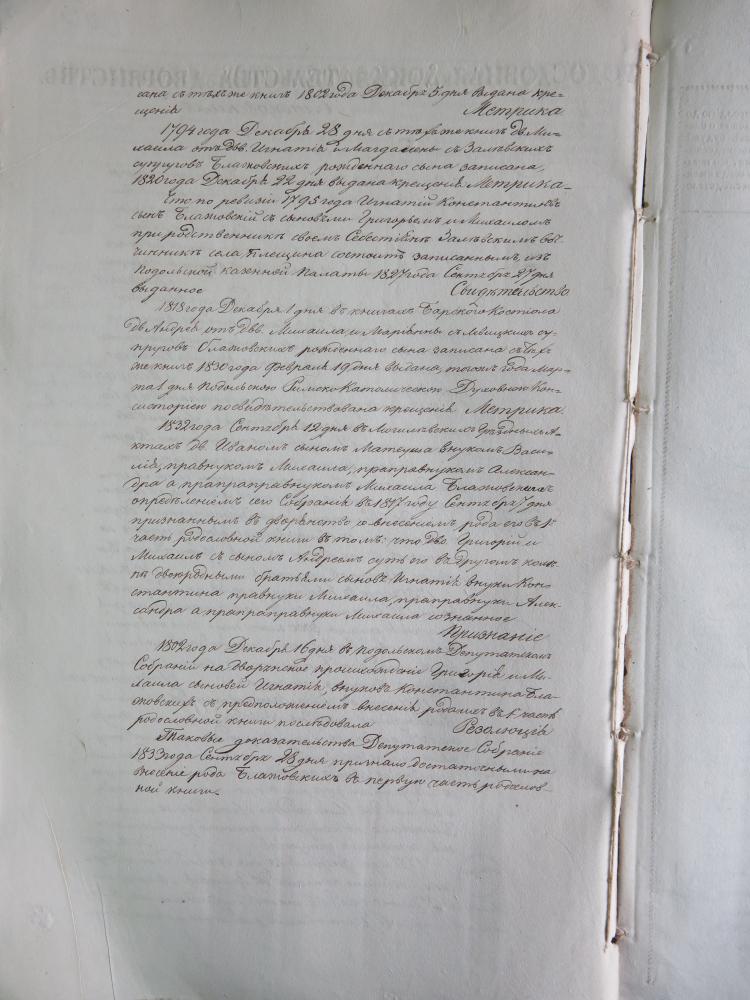 сана съ тѣхъ же книгъ 1802 года Декабря 5 дня выдана кре-
щенія Метрика
1794 года Декабря 28 дня съ тѣхъ же книгъ дв. Ми-
хаила отъ дв. Игнатія и Магдалены съ Залѣвскихъ
супруговъ Блажовскихъ рожденнаго сына записана,
1820 года Декабря 22 дня выдана крещенія Метрика
Что по ревизіи 1795 года Игнатій Константиновъ
сынъ Блажовскій съ сыновьями Григорьемъ и Михаиломъ
при родственникѣ своемъ Себестіянѣ Залѣвскимъ вот-
чинникѣ села Плещина состоитъ записаннымъ, изъ
Подольской казенной Палаты 1827 года Сентября 27 дня
выданное Свидѣтельство
1818 года Декабря 1 дня въ книгахъ Барского Костела
дв. Андрея отъ двв. Михаила и Маріанны съ су-
пруговъ Блажовскихъ рожденнаго сына записана съ тѣхъ
же книгъ 1830 года Февраля 19 дня выдана, того жъ года Мар-
та 1 дня Подольскою Римско Католическою Духовною Кон-
систоріею посвидѣтельствована крещенія Метрика.
1832 года Сентября 12 дня въ Могилѣвскихъ Уѣздныхъ А-
ктахъ дв. Иваномъ сыномъ Матеуша внукомъ Васи-
лія, правнукомъ Михаила, праправнукомъ Алексан-
дра а прапраправнукомъ Михаила Блажовскимъ
опредѣленіемъ сего Собранія въ 1817 году Сентября 7 дня
признаннымъ въ дворянствѣ со внесеніемъ рода его въ 1ю
часть родословной книги въ томъ: что дво Григорій и
Михаилъ съ сыномъ Андреемъ суть его въ другомъ колѣ-
нѣ двоюродными братьями сыновья Игнатія внуки Кон-
стантина правнуки Михаила, праправнуки Алек-
сандра а прапраправнуки Михаила сознанное
Признаніе
1802 года Декабря 16 дня въ Подольскомъ Депутатскомъ
Собраніи на Дворянское происхожденіе Григорія и Ми-
хаила сыновей Игнатія, внуковъ Константина Бла-
жовскихъ съ предположеніемъ внесенія рода ихъ въ 1 часть
родословной книги послѣдовала Резолюція
Таковые доказательства Депутатское Собраніе
1833 года Сентября 28 дня признало достаточными на
внесеніе рода Блажовскихъ въ первую часть родослов-
ной книги.